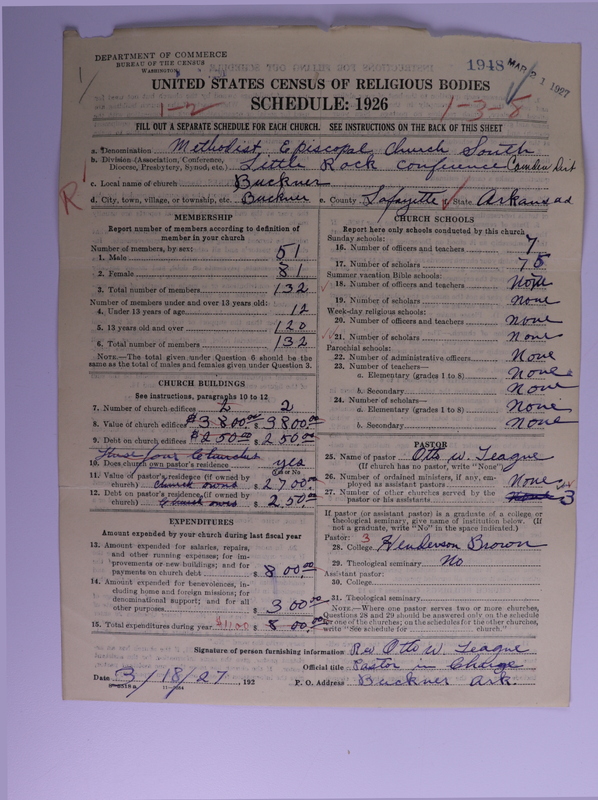 DEPARTMENT OF COMMERCE
BUREAU OF THE CENSUS
WASHINGTON
1948 MAR 21 1927
UNITED STATES CENSUS OF RELIGIOUS BODIES
SCHEDULE: 1926
1-2
1-3-8
FILL OUT A SEPARATE SCHEDULE FOR EACH CHURCH. SEE INSTRUCTIONS ON THE BACK OF THIS SHEET
a. Denomination Methodist Episcopal Church South
b. Division (Association, Conference, Diocese, Presbytery, Synod, etc.) Little Rock Conference Camden Dist
c. Local name of church Buckner
R
d. City, town, village, or township, etc. Buckner e. County Lafayette State Arkansas
MEMBERSHIP
Report number of members according to definition of member in your church
Number of members, by sex:
1. Male 51
2. Female 81
3. Total number of members 132
Number of members under and over 13 years old:
4. Under 13 years of age 12
5. 13 years old and over 120
6. Total number of members 132
NOTE.—The total given under Question 6 should be the same as the total of males and females given under Question 3.
CHURCH BUILDINGS
See instructions, paragraphs 10 to 12
7. Number of church edifices 2 2
8. Value of church edifices $3800.00 3800.00
9. Debt on church edifices $250.00 250.00
These four Churches
10. Does church own pastor's residence yes
(Yes or No)
11. Value of pastor's residence (if owned by church) Church owns $ 2700.00
12. Debt on pastor's residence (if owned by church) Church owns $ 250.00
EXPENDITURES
Amount expended by your church during last fiscal year
13. Amount expended for salaries, repairs, and other running expenses; for improvements or new buildings; and for payments on church debt $ 800.00
14. Amount expended for benevolences, including home and foreign missions; for denominational support; and for all other purposes $ 300.00
15. Total expenditures during year $1100 $ 800.00
CHURCH SCHOOLS
Report here only schools conducted by this church
Sunday schools:
16. Number of officers and teachers 7
17. Number of scholars 75
Summer vacation Bible schools:
18. Number of officers and teachers None
19. Number of scholars None
Week-day religious schools:
20. Number of officers and teachers None
21. Number of scholars None
Parochial schools:
22. Number of administrative officers None
23. Number of teachers—
a. Elementary (grades 1 to 8) None
b. Secondary None
24. Number of scholars—
a. Elementary (grades 1 to 8) None
b. Secondary None
PASTOR
25. Name of pastor Otto W. Teague
(If church has no pastor, write "None")
26. Number of ordained ministers, if any, employed as assistant pastors None
27. Number of other churches served by the pastor or his assistants 3
If pastor (or assistant pastor) is a graduate of a college or theological seminary, give name of institution below. (If not a graduate, write "No" in the space indicated.)
Pastor: 3
28. College Henderson Brown
29. Theological seminary No
Assistant pastor:
30. College
31. Theological seminary
NOTE.—Where one pastor serves two or more churches, Questions 28 and 29 should be answered only on the schedule for one of the churches; on the schedules for the other churches, write "See schedule for church."
Signature of person furnishing information Rev Otto W. Teague
Official title Pastor in Charge
Date 3/18/27, 192 P. O. Address Buckner Ark.